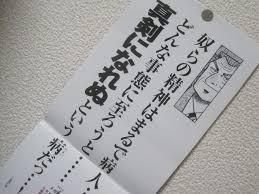 奴らの精神はまるで病人
どんな事態に至ろうと
真剣になれぬという
…………病だっ…！